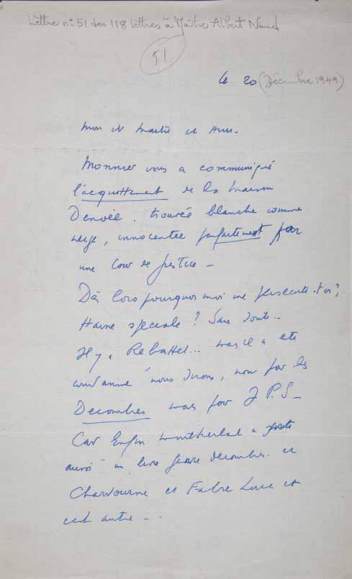 Lettre n° 51 des 118 lettres à Maître Albert Naud
51
le 20 (décembre 1949)
mon cher Maître et Ami.
Monnier vous a communiqué
l'acquittement de la maison
Denoël. trouvée blanche comme
neige, innocentée parfaitement par
une Cour de Justice -
Dès lors pourquoi moi me persécute-t-on?
Haine spéciale? Sans doute -
Il y a Rebattet... mais il a été
condamné nous dirons, non par les
Decombres mais par J.P.S -
Car Enfin Montherlant a
un livre genre décombres. et
Chardonne et Fabre Luce et
cent autre - .